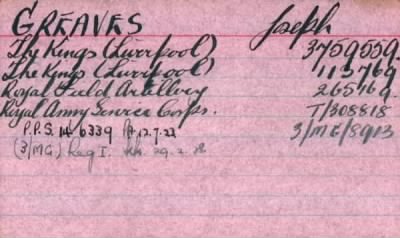 GREAVES Joseph
The Kings (Liverpool) 3759559.
The Kings (Liverpool) 113769
Royal Field Artillery 265169.
Royal Army Service Corps. T/308818
P.P.S. 14/6339 12.7.23 3/MG/8913
(3/MG) Reg I. 29.2.28